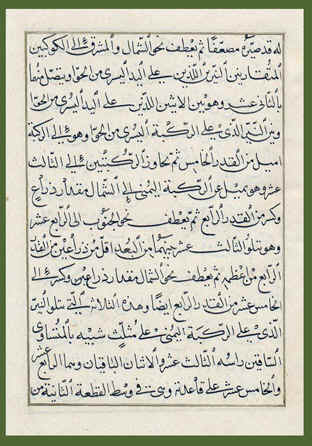 له قد صيّره مصعّفا ثم يعطف نحو الشمال والمشرق الى الكوكبين
المتقاربين النيرين اللذين على اليد اليسرى من الحوا ويتصل منها
بالثاني عشر وهو بين الاثنين اللذين على اليد اليسرى من الحوا
وبين النير الذي على الركبة اليسرى من الحوا وهو الى الركبة
اميل من القدر الخامس ثم يجاوز الركبتين الى الثالث
عشر وهو يميل عن الركبة اليمنى الى الشمال مقدار ذراع
وكسر من القدر الرابع ثم يعطف نحو الجنوب الى الرابع عشر
وهو يتلو الثالث عشر بينهما من البعد اقل من ذراعين من القدر
الرابع من عظمه ثم يعطف نحو الشمال مقدار ذراعين وكسر الى
الخامس عشر من القدر الرابع ايضا وهذه الثلاثة التي تتلو النير
الذي على الركبة اليمنى على مثلث شبيه بالمتساوي
الساقين راسه الثالث عشر والاثنان الباقيان وهما الرابع عشر
والخامس عشر على قاعدته وهي في وسط القطعة الثانية من